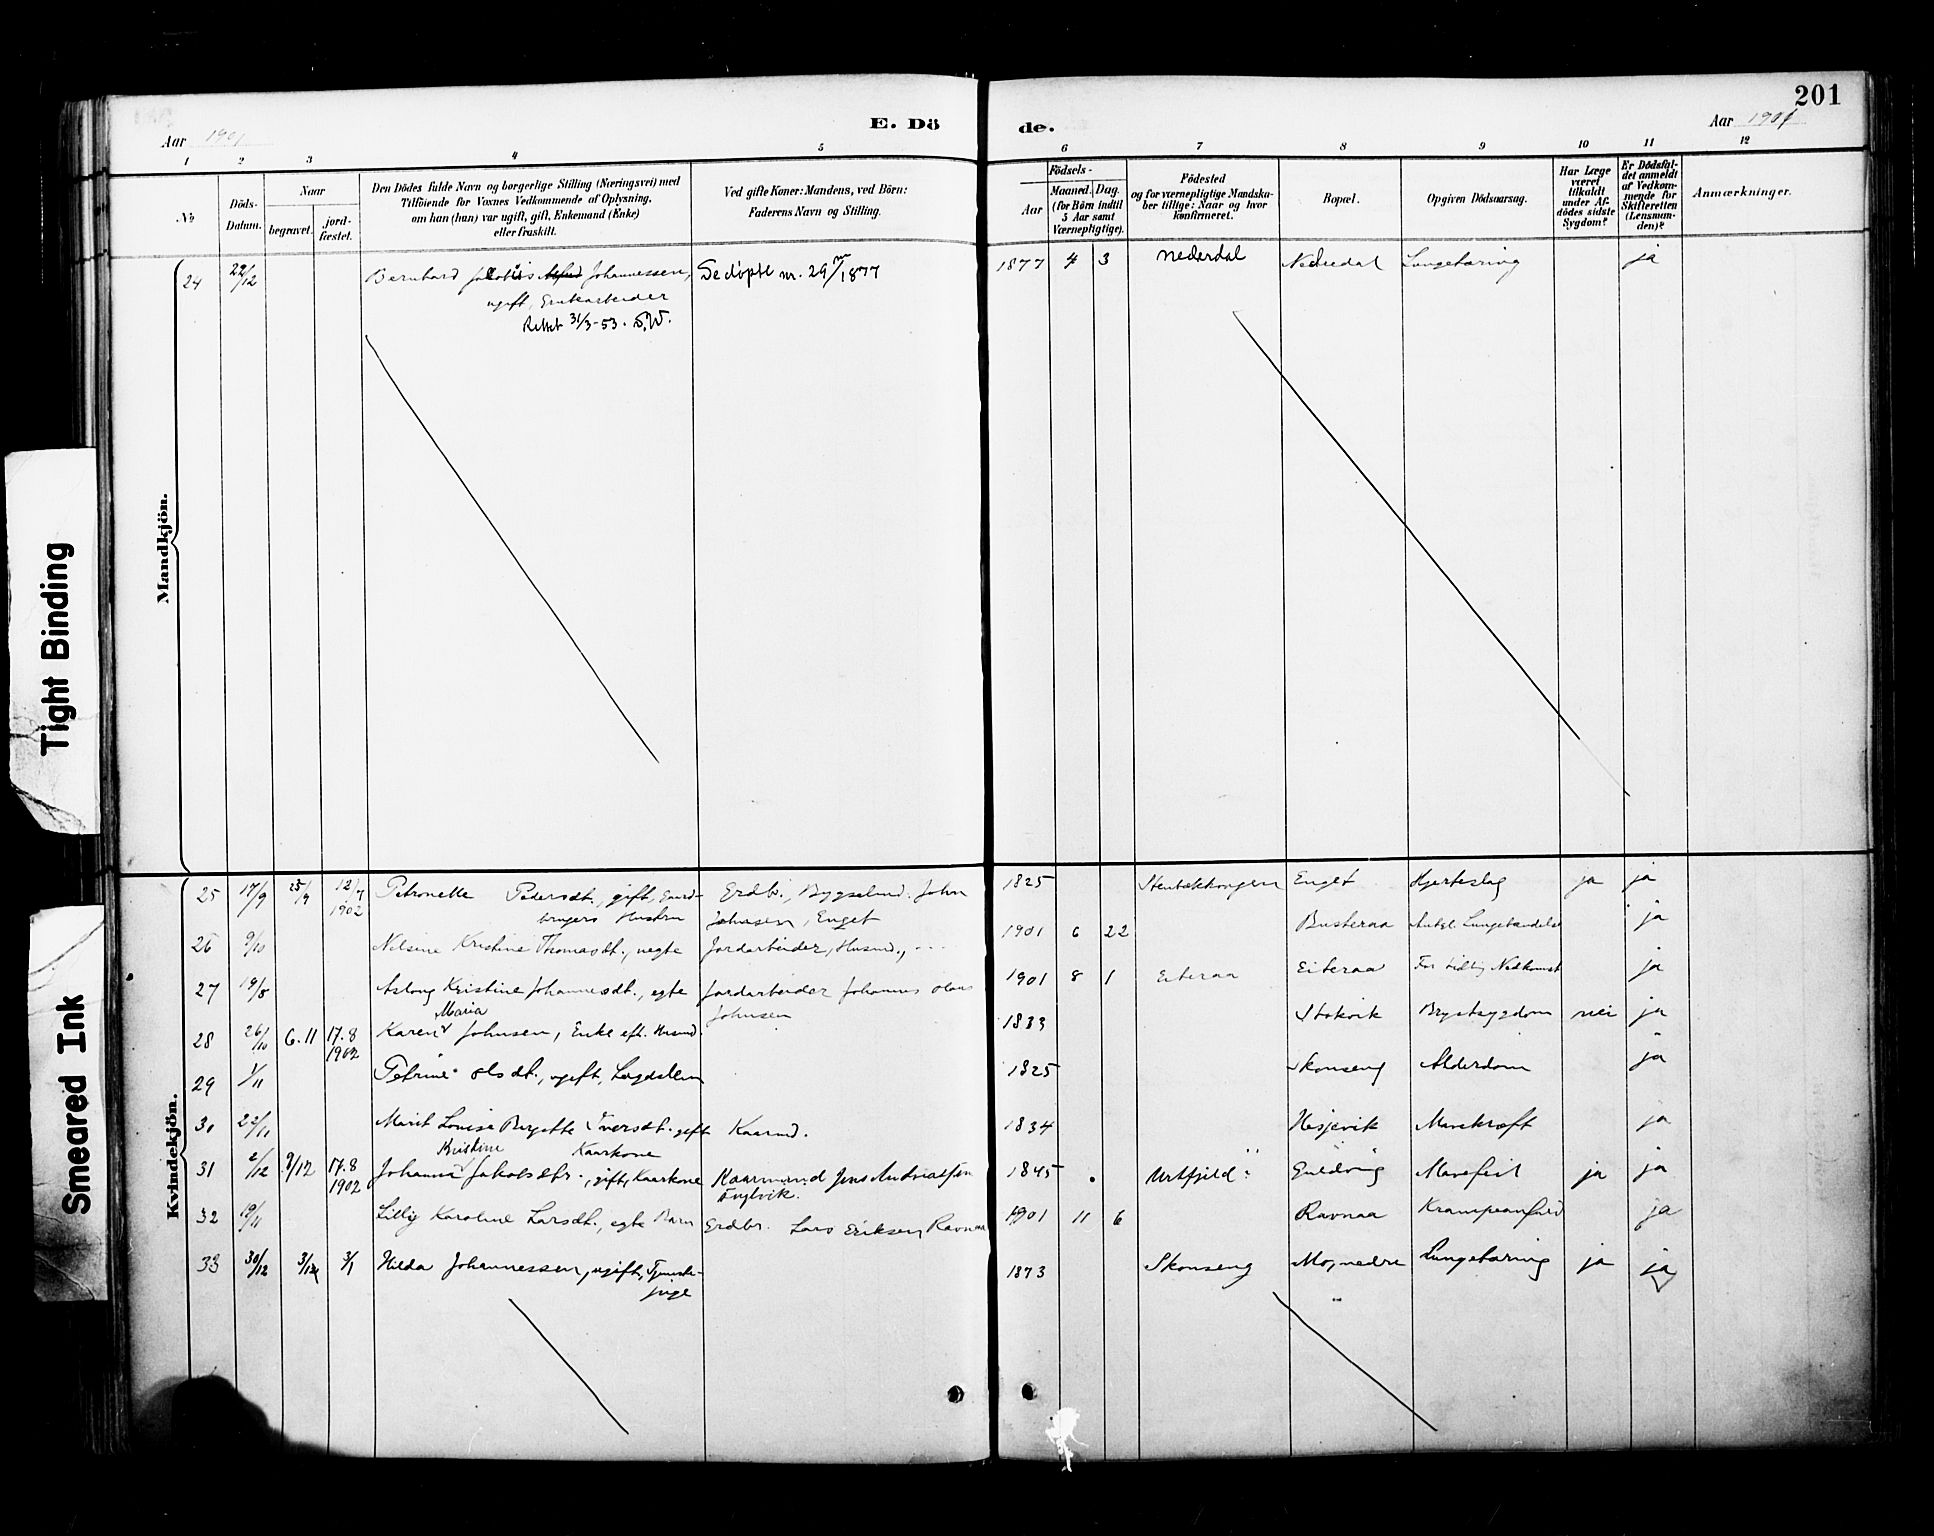 201
E. Dö de.
Aar 1901
Aar 1901
1 2 3 4 5 6 7 8 9 10 11 12
No
Döds-Datum.
Naar
begravet.
jord-fæstet.
Den Dödes fulde Navn og borgerlige Stilling (Næringsvei) med
Tilföiende for Voxnes Vedkommende af Oplysning,
om han (hun) var ugift, gift, Enkemand (Enke)
eller fraskilt.
Ved gifte Koner: Mandens, ved Börn:
Faderens Navn og Stilling.
Födsels-
Aar
Maaned. Dag.
(for Börn indtil
5 Aar samt
Værnepligtige).
Födested
og for værnepligtige Mandska-
ber tillige: Naar og hvor
konfirmeret.
Bopæl.
Opgiven Dödsaarsag.
Har Læge
været
tilkaldt
under Af-
dödes sidste
Sygdom?
Er Dödsfal-
det anmeldt
af Vedkom-
mende for
Skifteretten
(Lensman-
den)?
Anmærkninger.
Mandkjön.
24 22/12 Bernhard Johannessen, Se døpte nr. 29/1877 1877 4 3 Nederdal Nederdal Lungetæring ja
ugift,
Rettet 31/3-53. S.W.
Kvindekjön.
25 17/9 12/7 1902 Petronelle Pedersdt., gift, Gaard- John 1825 Enget Hjerteslag ja ja
brugers Hustru Johnsen, Enget
26 9/10 Nilsine Kristine Thomasdt., uegte Jordarbeider, Husmd., 1901 6 22 Busteraa ja
27 19/8 Aslaug Kristine Johannesdt., egte Jordarbeider Johannes Olaus 1901 8 1 Eiteraa Eiteraa For tidlig Nedkomst ja
Johnsen
Maria
28 26/10 6.11 17.8 1902 Karen Johnsen, Enke eft. Husmd. 1833 Stokvik Brystsygdom nei ja
29 1/11 Petrine Olsdt., ugift, Lægdslem 1825 Skonseng Alderdom ja
30 22/11 Marit Lovisa Birgitte Iversdt. gift Kaarmd. 1834 Hesjevik Mavekræft ja
Kristine Kaarkone
31 2/12 9/12 17.8 1902 Johanna Jakobsdtr., gift, Kaarkone Kaarmand Jens Andreassen 1845 Urtfjeld Mavefeil ja ja
32 19/11 Lilly Karoline Larsdt., egte Barn Grdbr. Lars Eriksen Ravnaa 1901 11 6 Ravnaa Krampeanfald ja
33 30/12 3/1 Hilda Johannessen, ugift, Tjeneste- 1873 Skonseng Mo, nedre Lungetæring ja ja
pige
Tight Binding
Smeared Ink